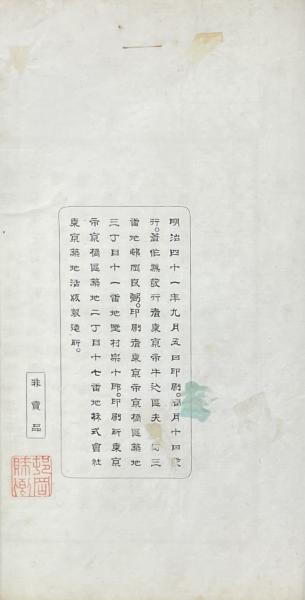 明治四十一年九月五日印刷。仝月十日發
行。著作兼發行者東京市牛込區夫町三
番地邨岡良弼。印刷者東京市京橋區築地
三丁目十一番地野村宗十郎。印刷所東京
市京橋區築地二丁目十七番地株式會社
東京築地活版製造所。
非賣品